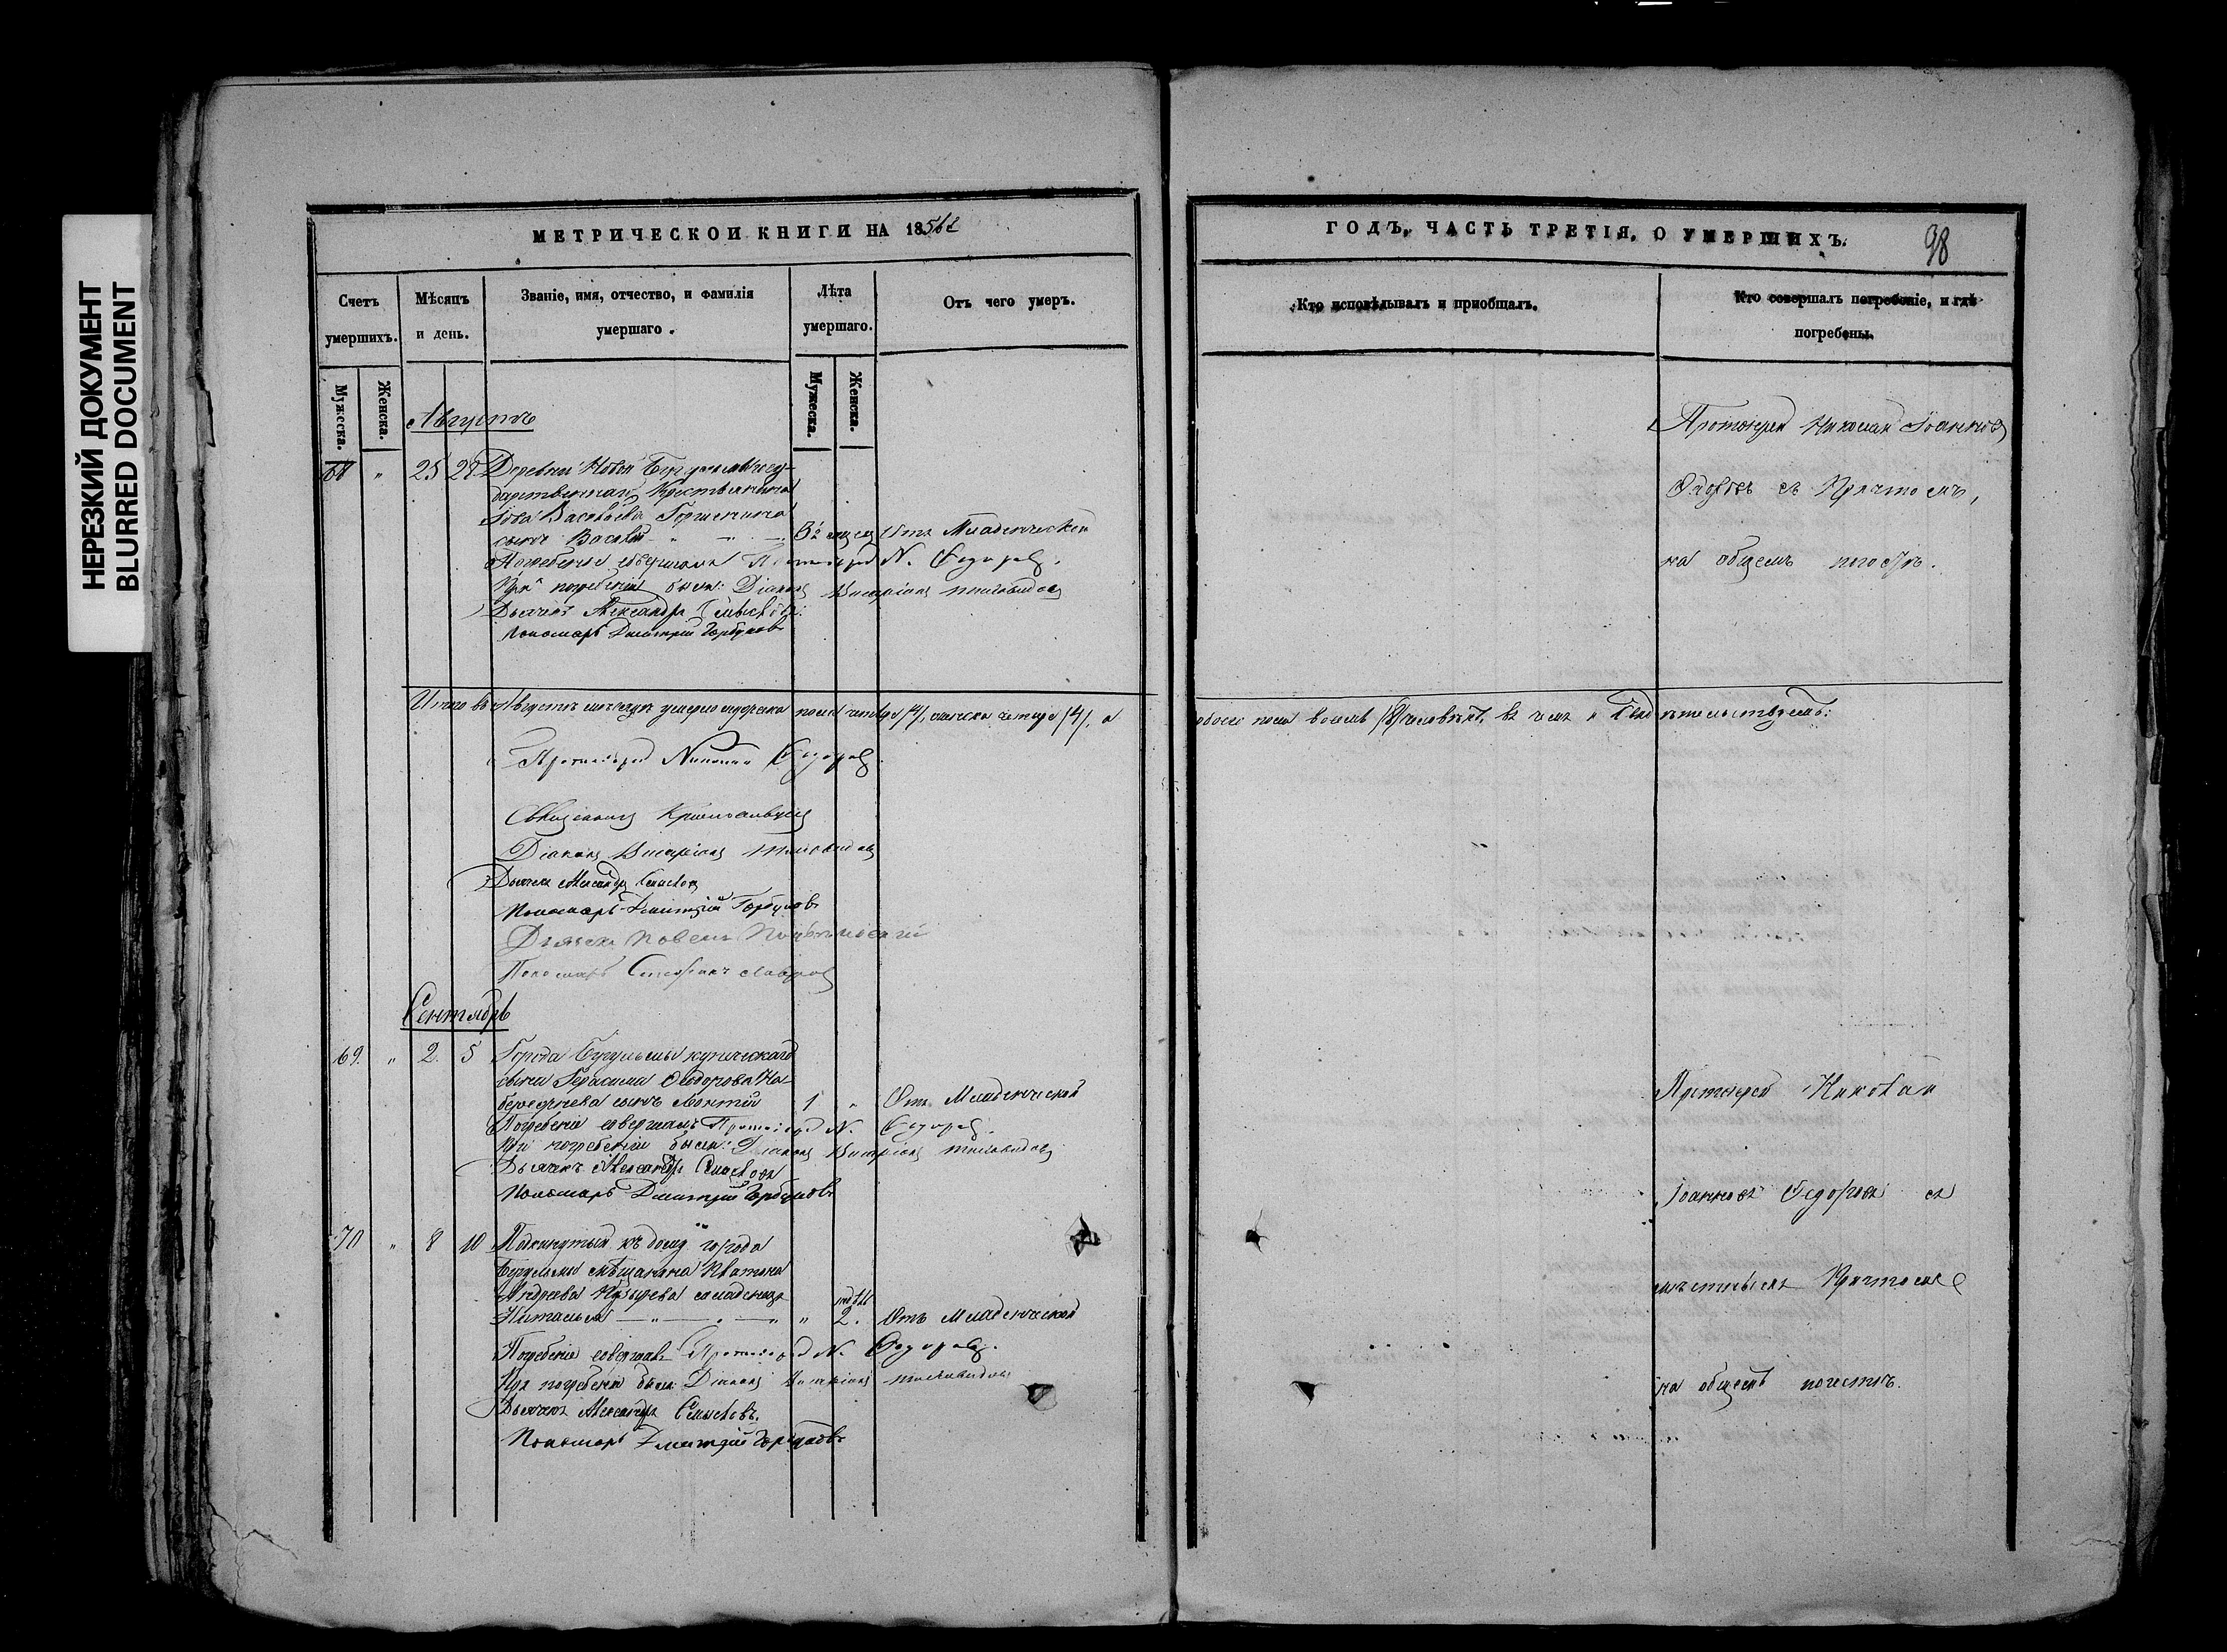 НЕРЕЗКИЙ ДОКУМЕНТ
BLURRED DOCUMENT
МЕТРИЧЕСКОЙ КНИГИ НА 1856й
Счетъ умершихъ.
Мѣсяцъ и день.
Званіе, имя, отчество, и фамилія умершаго.
Лѣта умершаго.
Отъ чего умеръ.
Мужеска.
Женска.
Мужеска.
Женска.
Августъ
68 " 25 27 Деревни Новой Бугульмы госу-
дарственнаго Крестьянина
Іова Васильева Горшенина
сынъ Василій 3½ мѣсяц Отъ Младенческой
Погребеніе совершалъ Протоіерей Н. Федоровъ.
При погребеніи были: Діаконъ Виссаріонъ
Дьячекъ Александръ Смысловъ.
Пономарь Дмитрій Горбуновъ
Итого въ Августѣ мѣсяцѣ умерло мужеска пола четыре /4/, женска четыре /4/, а
Протоіерей Николай Федоровъ
Священникъ
Діаконъ Виссаріонъ
Дьячекъ Александръ Смысловъ
Пономарь Дмитрій Горбуновъ
Дьячекъ Павелъ
Пономарь Стефанъ Лавровъ
Сентябрь
69. " 2. 5 Города Бугульмы купеческаго
сына Герасима Федорова На-
сынъ Леонтій 1 " Отъ Младенческой
Погребеніе совершалъ Протоіерей Н. Федоровъ.
При погребеніи были: Діаконъ Виссаріонъ
Дьячекъ Александръ Смысловъ
Пономарь Дмитрій Горбуновъ
70 " 8 10 Подкинутый къ дому города
Бугульмы мѣщанина
Андреева младенецъ
Наталья " недѣль 2. Отъ Младенческой
Погребеніе совершалъ Протоіерей Н. Федоровъ.
При погребеніи были: Діаконъ Виссаріонъ
Дьячекъ Александръ Смысловъ.
Пономарь Дмитрій Горбуновъ
ГОДЪ, ЧАСТЬ ТРЕТІЯ, О УМЕРШИХЪ.
98
Кто исповѣдывалъ и пріобщалъ.
Кто совершалъ погребеніе, и гдѣ погребены.
Протоіерей Николай Іоанновъ
Федоровъ съ Причтомъ,
на общемъ погостѣ.
обоего пола восемь /8/ человѣкъ, въ чемъ и свидѣтельствуемъ:
Протоіерей Николай
Іоанновъ Федоровъ съ
мѣстнымъ Причтомъ
на общемъ погостѣ.